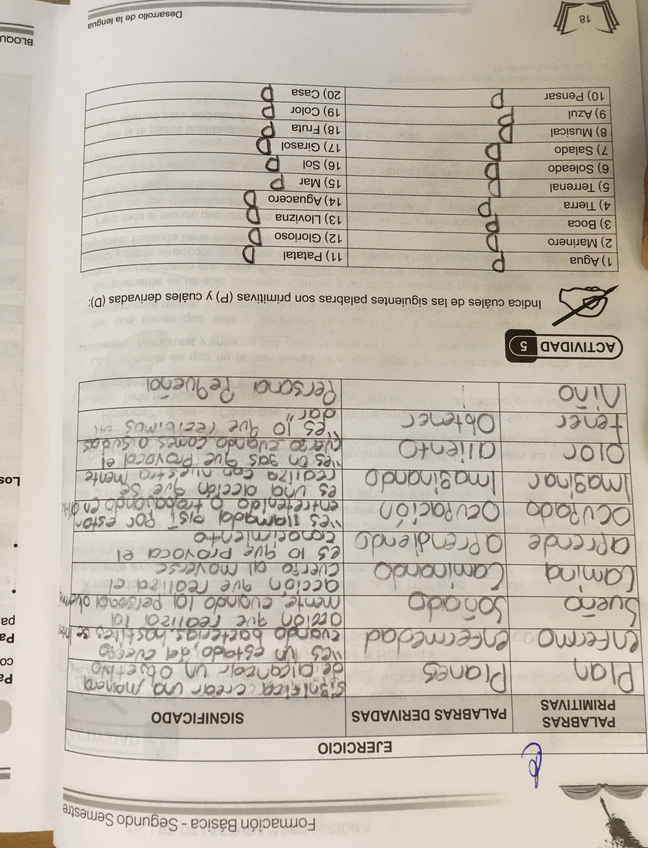 Formación Básica - Segundo Semestre
EJERCICIO
PALABRAS PRIMITIVAS
PALABRAS DERIVADAS
SIGNIFICADO
Plan
Planes
significa crear una manera
de alcanzar un objetivo
enfermo
enfermedad
"es un estado del cuerpo
cuando bacterias hostiles se
Sueño
Soñado
acción que realiza la
mente, cuando la persona
Camina
Caminando
acción que realiza el
cuerpo al moverse
aprende
aprendiendo
es lo que provoca el
conocimiento
ocupado
ocupación
"es llamada asi" por estar
entretenido o trabajando en
Imaginar
Imaginando
es una acción que se
realiza con nuestra mente
olor
aliento
"es un gas que provoca el
cuerpo cuando comes o sudas
tener
Obtener
"es lo que recibimos
dar"
Niño
Persona Pequeña
ACTIVIDAD 5
Indica cuáles de las siguientes palabras son primitivas (P) y cuáles derivadas (D):
1) Agua P
11) Patatal D
2) Marinero D
12) Glorioso D
3) Boca P
13) Llovizna D
4) Tierra P
14) Aguacero D
5) Terrenal D
15) Mar P
6) Soleado D
16) Sol P
7) Salado D
17) Girasol D
8) Musical D
18) Fruta P
9) Azul P
19) Color P
10) Pensar P
20) Casa P
18
Desarrollo de la lengua
BLOQU
Los
pa
Pa
co
Pa